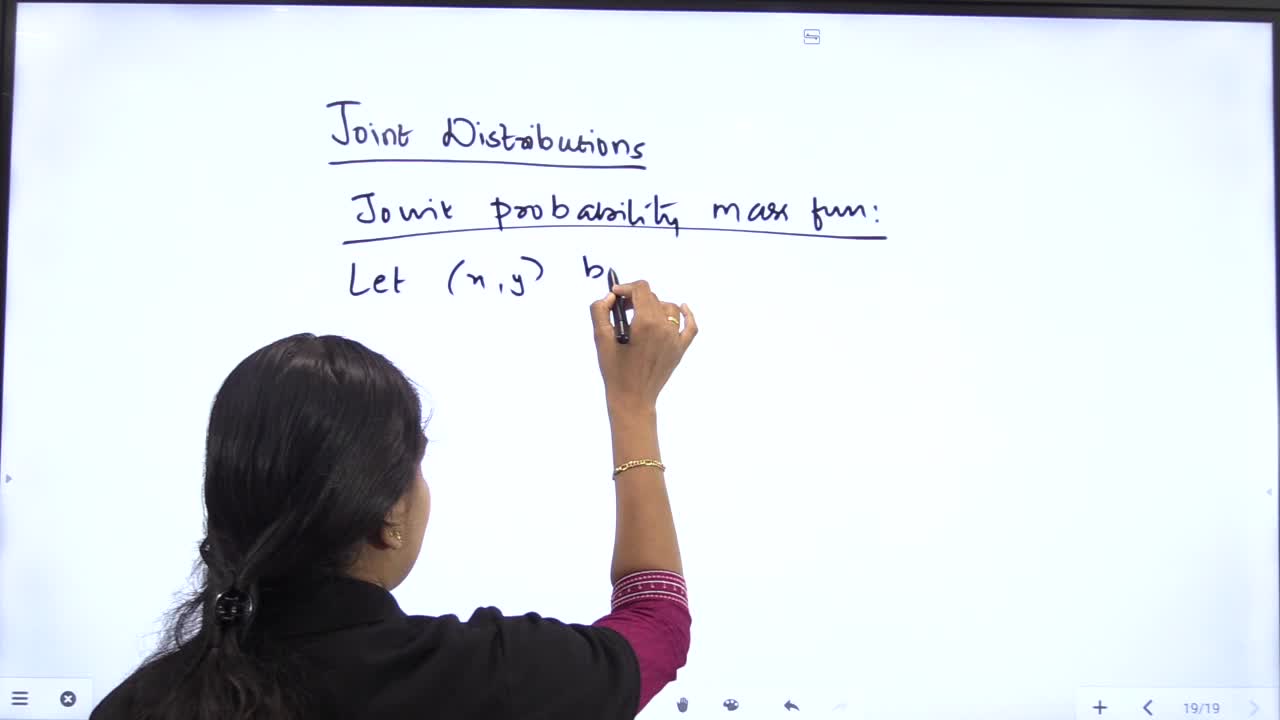 Joint Distributions
Joint probability mass fun:
Let (x, y) b
19/19